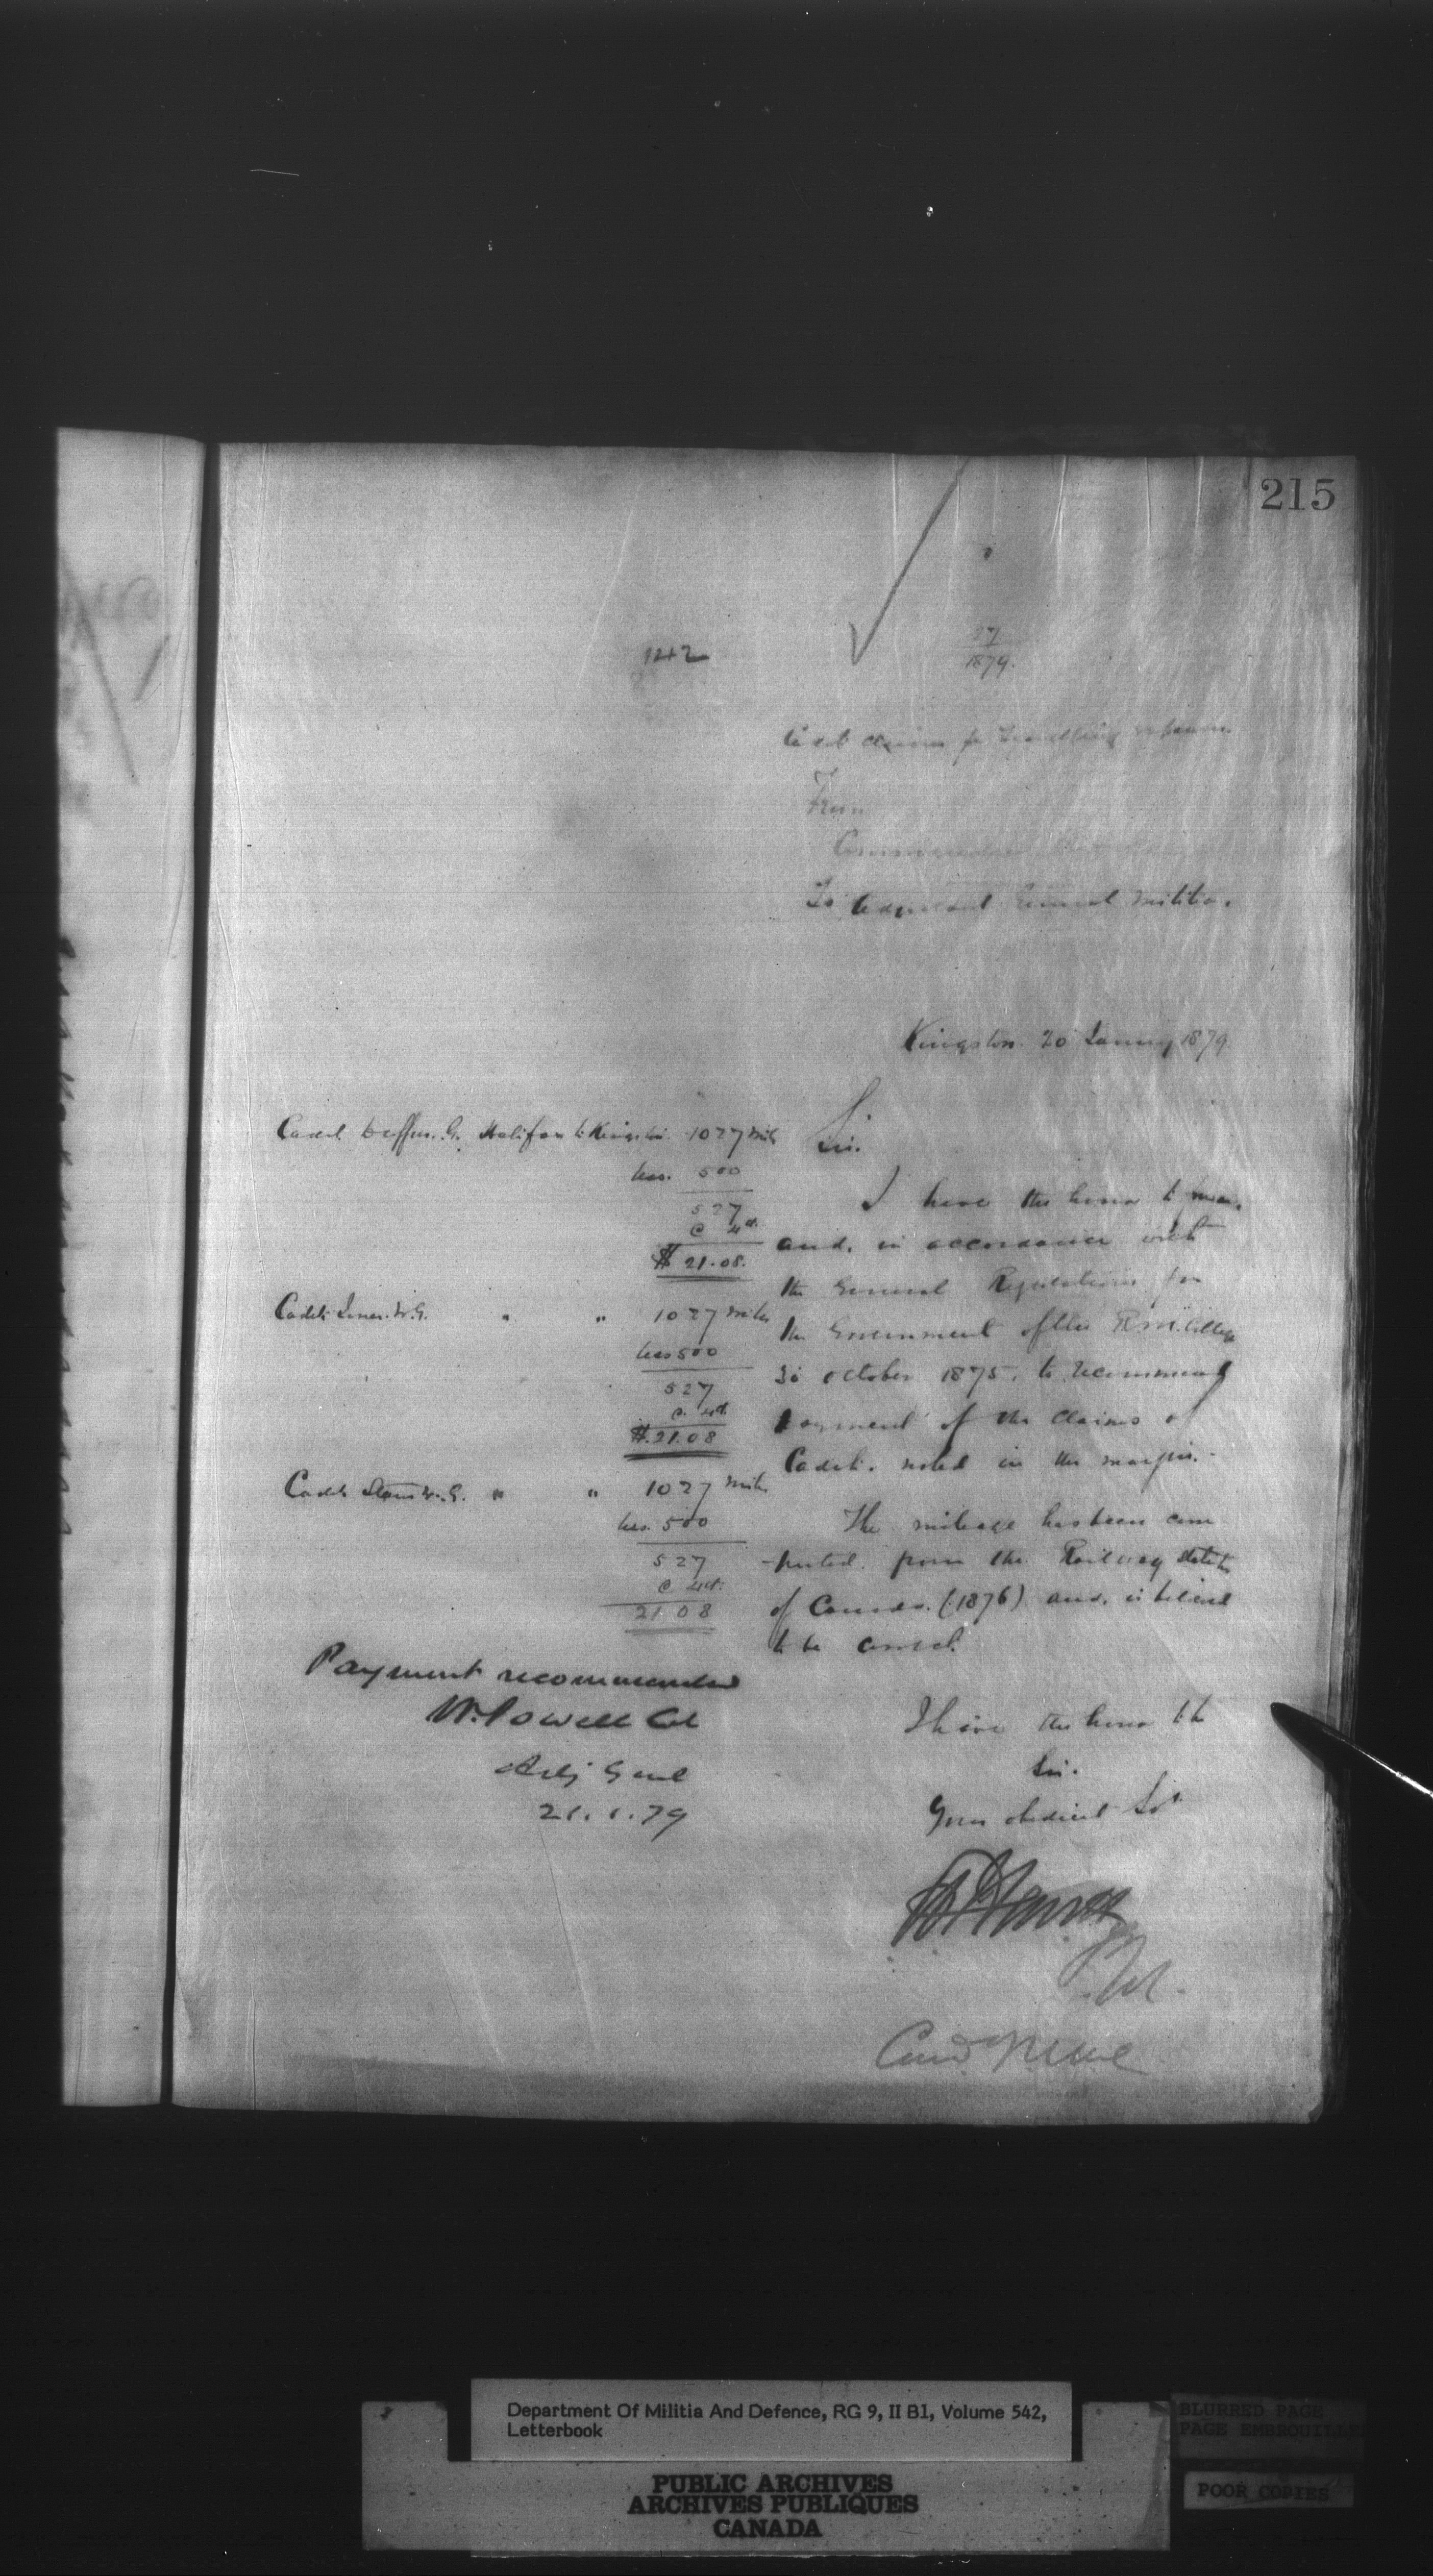 215
1242
37
1879.
Cadet claims for travelling expenses.
From
Commandant
To Adjutant General Militia.
Kingston. 20 January 1879.
Cadet Duffus. G. Halifax to Kingston. 1027 miles
less. 500
527
@ 4ct.
$ 21.08.
Cadet Jones. W.G. " " 1027 miles
less 500
527
@ 4ct.
$.21.08
Cadet Stairs W.G. " " 1027 miles
less. 500
527
@ 4ct.
21 08
Payment recommended
W. Powell Col
Adj Genl
21.1.79
Sir.
I have the honor to
and, in accordance with
the General Regulations for
the Government of the R.M. College
October 1875, to recommend
payment of the claims of
Cadets. noted in the margin.
The mileage has been com
-puted. from the Railway
of Canada. (1876) and, is believed
to be correct.
I have the honor to be
Sir.
Your obedient Svt
Col.
Comdt
Department Of Militia And Defence, RG 9, II B1, Volume 542,
Letterbook
PUBLIC ARCHIVES
ARCHIVES PUBLIQUES
CANADA
BLURRED PAGE
PAGE EMBROUILLEE
POOR COPIES